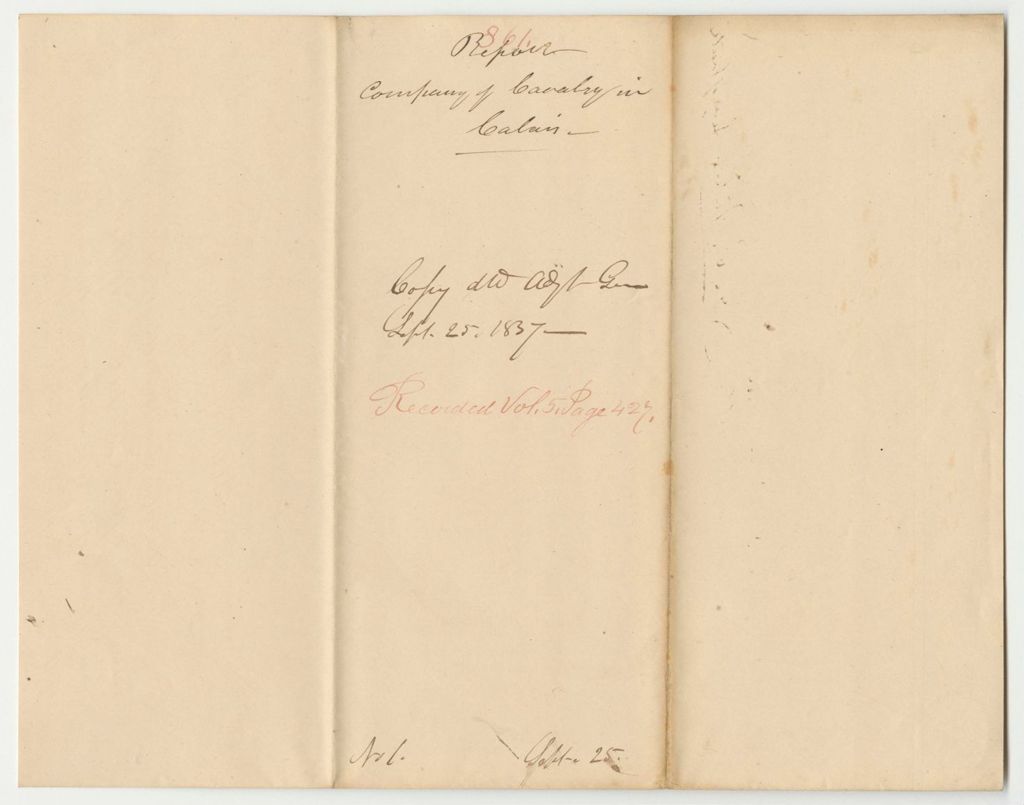 Report
Company of Cavalry in
Calais.
Copy dld Adjt Gen
Sept. 25. 1837
Recorded Vol. 5. Page 427.
No 1.
Sept. 25.